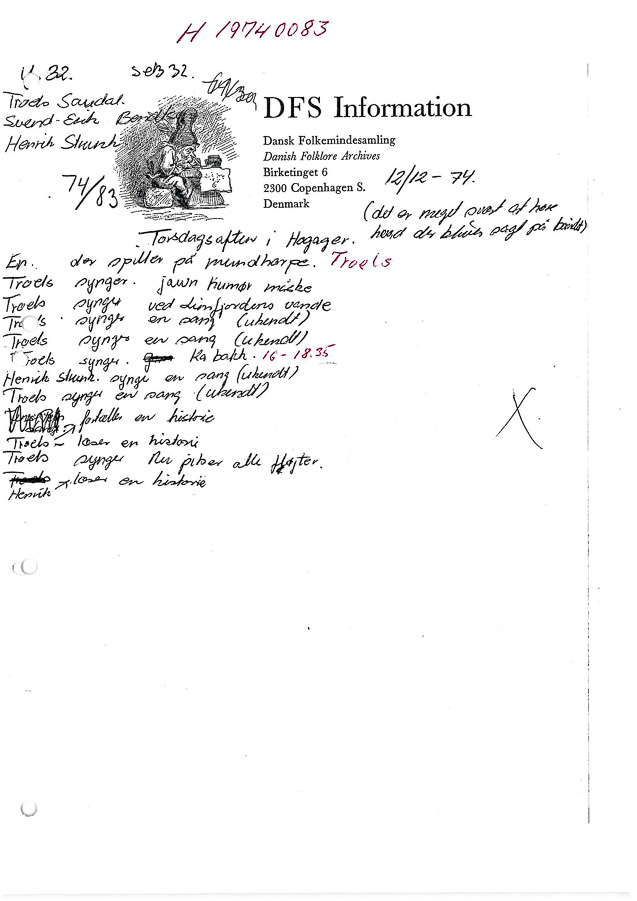 H 19740083
seB 32.
Troels Sandal.
Svend-Erik
Henrik Strunk
74/83
DFS Information
Dansk Folkemindesamling
Danish Folklore Archives
Birketinget 6
2300 Copenhagen S.
Denmark
12/12 - 74.
(det er meget svært at høre
hvad der bliver sagt på båndet)
Torsdagsaften i Hogager.
En. der spiller på mundharpe. Troels
Troels synger. jawn humør måske
Troels synger ved limfjordens vande
Troels synger en sang (ukendt)
Troels synger en sang (ukendt)
Troels synger. Ka bakh. 16-18.35
Henrik Strunk. synger en sang (ukendt)
Troels synger en sang (ukendt)
fortæller en historie
Troels læser en historie
Troels synger Nu piber alle fløjter.
Henrik læser en historie